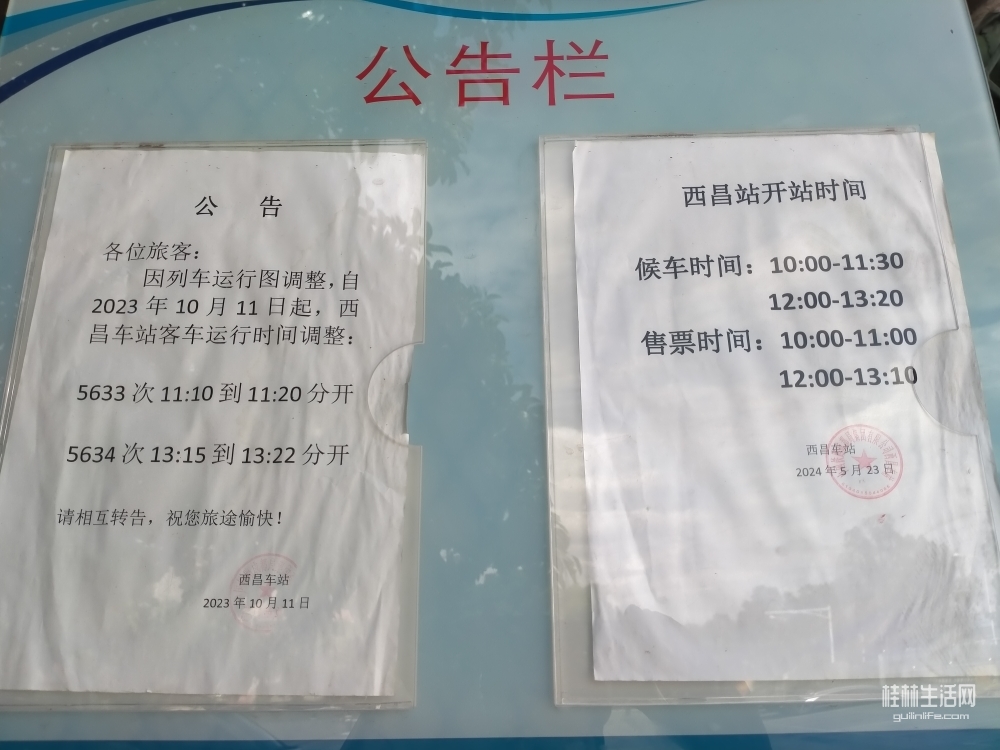 公告栏
公 告
各位旅客：
因列车运行图调整，自
2023 年 10 月 11 日起，西
昌车站客车运行时间调整：
5633 次 11:10 到 11:20 分开
5634 次 13:15 到 13:22 分开
请相互转告，祝您旅途愉快！
西昌车站
2023 年 10 月 11 日
西昌站开站时间
候车时间：10:00-11:30
12:00-13:20
售票时间：10:00-11:00
12:00-13:10
西昌车站
2024 年 5 月 23 日
桂林生活网
guilinlife.com